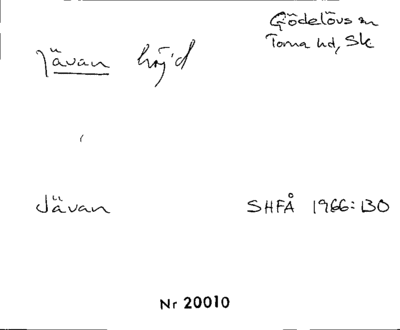 Gödelövs sn
Torna hd, Sk
Jävan höjd
Jävan SHFÅ 1966:130
Nr 20010